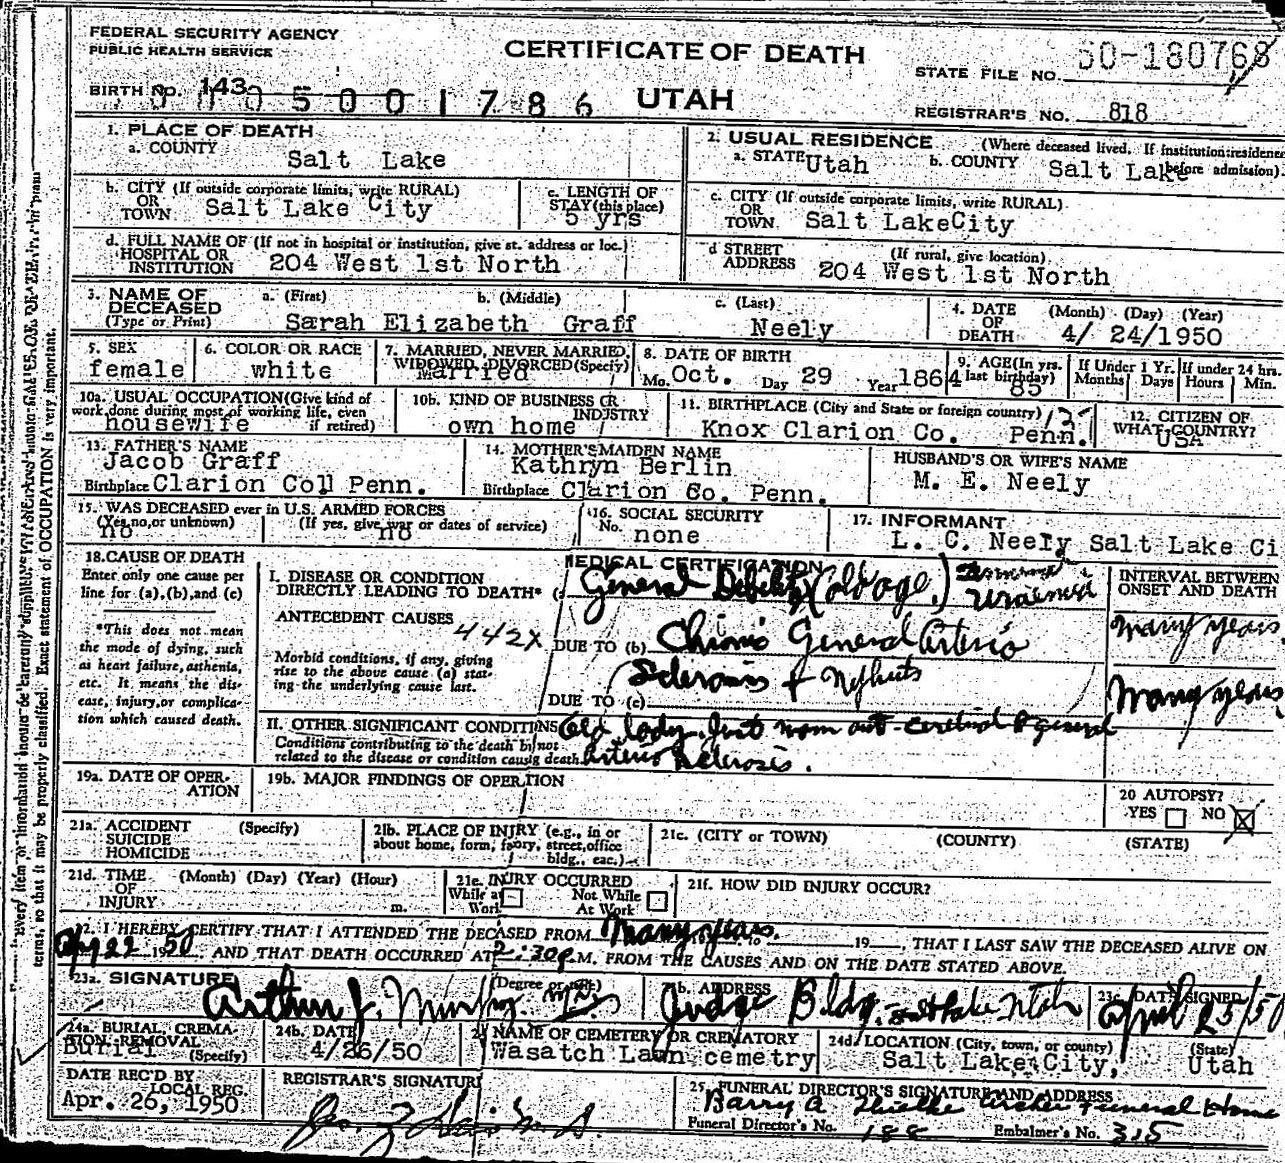 FEDERAL SECURITY AGENCY
PUBLIC HEALTH SERVICE
CERTIFICATE OF DEATH
UTAH
STATE FILE NO. 50-180768
BIRTH NO. 143 0500 1786
REGISTRAR'S NO. 818
1. PLACE OF DEATH
a. COUNTY Salt Lake
2. USUAL RESIDENCE (Where deceased lived. If institution: residence before admission).
a. STATE Utah b. COUNTY Salt Lake
b. CITY (If outside corporate limits, write RURAL) OR TOWN Salt Lake City
c. LENGTH OF STAY (this place) 5 yrs
c. CITY (If outside corporate limits, write RURAL) OR TOWN Salt LakeCity
d. FULL NAME OF (If not in hospital or institution, give st. address or loc.) HOSPITAL OR INSTITUTION 204 West 1st North
d STREET ADDRESS (If rural, give location) 204 West 1st North
3. NAME OF DECEASED (Type or Print)
a. (First) b. (Middle) c. (Last)
Sarah Elizabeth Graff Neely
4. DATE OF DEATH (Month) (Day) (Year) 4/ 24/1950
5. SEX female
6. COLOR OR RACE white
7. MARRIED, NEVER MARRIED, WIDOWED, DIVORCED (Specify) Married
8. DATE OF BIRTH Mo. Oct. Day 29 Year 1864
9. AGE (In yrs. last birthday) 85
If Under 1 Yr. Months Days
If under 24 hrs. Hours Min.
10a. USUAL OCCUPATION (Give kind of work done during most of working life, even if retired) housewife
10b. KIND OF BUSINESS OR INDUSTRY own home
11. BIRTHPLACE (City and State or foreign country) Knox Clarion Co. Penn.
12. CITIZEN OF WHAT COUNTRY? USA
13. FATHER'S NAME Jacob Graff
Birthplace Clarion Col Penn.
14. MOTHER'S MAIDEN NAME Kathryn Berlin
Birthplace Clarion Co. Penn.
HUSBAND'S OR WIFE'S NAME
M. E. Neely
15. WAS DECEASED ever in U.S. ARMED FORCES
(Yes, no, or unknown) no
(If yes, give war or dates of service) no
16. SOCIAL SECURITY No. none
17. INFORMANT
L. C. Neely Salt Lake Ci
18. CAUSE OF DEATH
Enter only one cause per line for (a), (b), and (c)
*This does not mean the mode of dying, such as heart failure, asthenia, etc. It means the disease, injury, or complication which caused death.
MEDICAL CERTIFICATION
I. DISEASE OR CONDITION DIRECTLY LEADING TO DEATH* General Debility (old age.) Uraemia
INTERVAL BETWEEN ONSET AND DEATH
many years
ANTECEDENT CAUSES 442X
Morbid conditions, if any, giving rise to the above cause (a) stating the underlying cause last.
DUE TO (b) Chronic General Arterio
Sclerosis + Nephritis
DUE TO (c)
Many years
II. OTHER SIGNIFICANT CONDITIONS Old lady. Just worn out - cerebral & general
Conditions contributing to the death but not related to the disease or condition causing death. Arterio Sclerosis.
19a. DATE OF OPERATION
19b. MAJOR FINDINGS OF OPERATION
20 AUTOPSY? YES NO X
21a. ACCIDENT SUICIDE HOMICIDE (Specify)
21b. PLACE OF INJRY (e.g., in or about home, form, factory, street, office bldg., eac.)
21c. (CITY or TOWN) (COUNTY) (STATE)
21d. TIME OF INJURY (Month) (Day) (Year) (Hour) m.
21e. INJURY OCCURRED While at Work Not While At Work
21f. HOW DID INJURY OCCUR?
22. I HEREBY CERTIFY THAT I ATTENDED THE DECEASED FROM Many years. 19 , THAT I LAST SAW THE DECEASED ALIVE ON
Apr 22 1950, AND THAT DEATH OCCURRED AT 2:30 P.M. FROM THE CAUSES AND ON THE DATE STATED ABOVE.
23a. SIGNATURE Arthur J. Murphy M.D. (Degree or title)
23b. ADDRESS Judge Bldg. Salt Lake Utah
23c. DATE SIGNED April 25/50
24a. BURIAL, CREMATION, REMOVAL (Specify) Burial
24b. DATE 4/26/50
24c NAME OF CEMETERY OR CREMATORY Wasatch Lawn cemetry
24d LOCATION (City, town, or county) (State)
Salt Lake City, Utah
DATE REC'D BY LOCAL REG. Apr. 26, 1950
REGISTRAR'S SIGNATURE
25. FUNERAL DIRECTOR'S SIGNATURE AND ADDRESS
Barry A Funeral Home
Funeral Director's No. 188 Embalmer's No. 315
terms, so that it may be properly classified. Exact statement of OCCUPATION is very important.